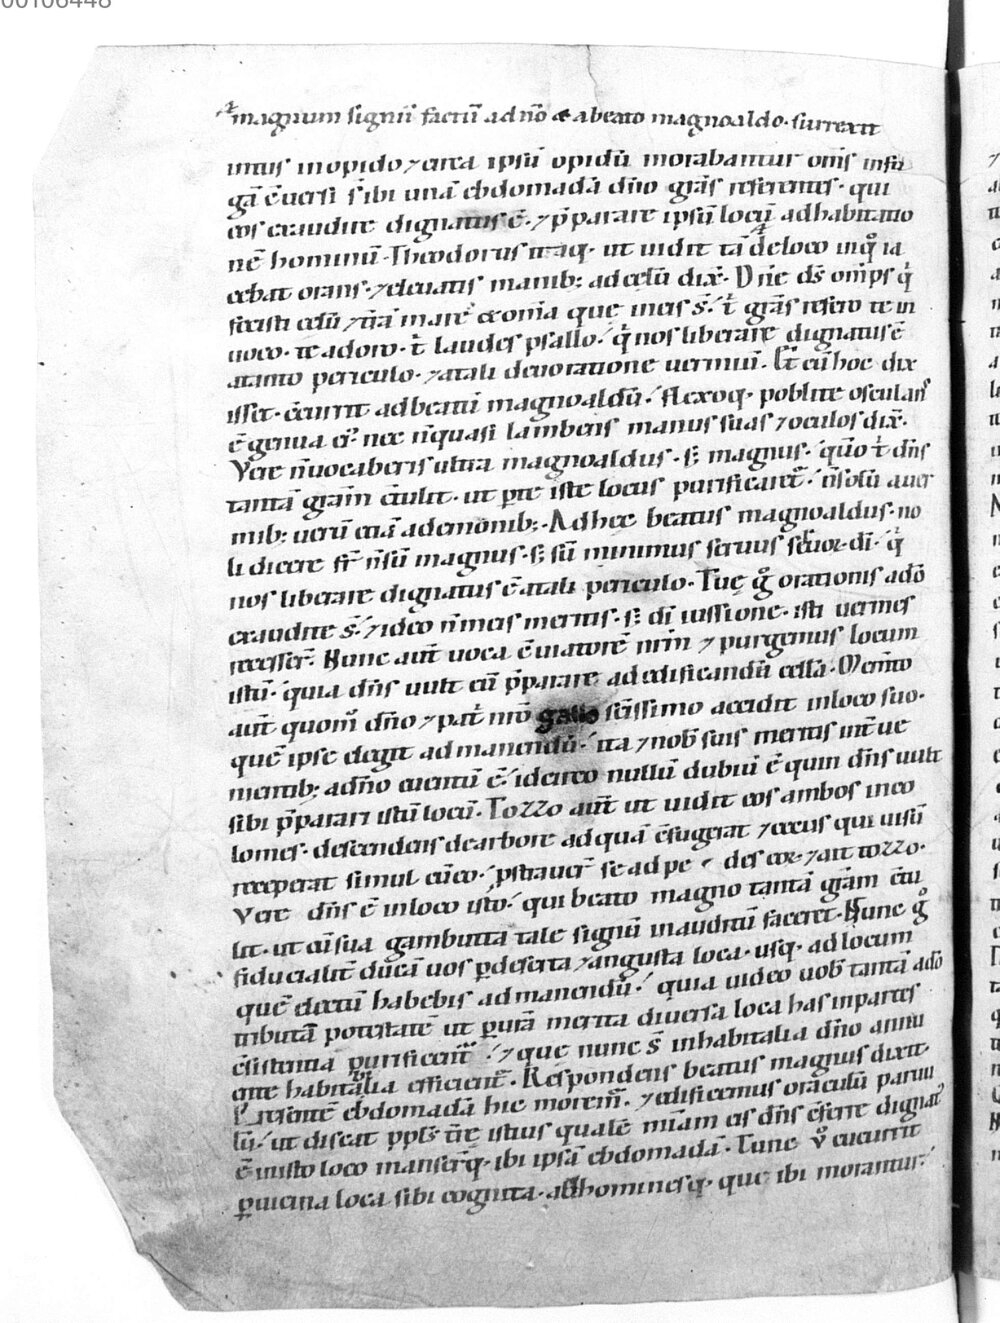 00106448
magnum signũ factũ ad nõ & a beato magnoaldo. surrexit
intus in opido ⁊ circa ipsũ opidũ morabantur om̃s in fu
gã ẽ uersi sibi unã ebdomadã dño grãs referentes. qui
eos exaudire dignatus ẽ. ⁊ p̄parare ipsũ locũ ad habitatio
nẽ hominũ. Theodorus itaq. ut uidit tã de loco in q̊ ia
cebat orans. ⁊ eleuatis manib; ad celũ dix̄. Dñe ds̄ omp̄s qͥ
fecisti celũ ⁊ t̃rã mare ⁊ omĩa que in eis s̄. t͛ grãs refero te in
uoco. te adoro. t͛ laudes psallo. qͥ nos liberare dignatus ẽ
a tanto periculo. ⁊ a tali deuoratione uermiũ. Et cũ hoc dix
isset. cucurrit ad beatũ magnoaldũ. flexoq. poplite osculans
ẽ genua ei᷒. nec ñ quasi lambens manus suas ⁊ oculos dix̄.
Vere ñ uocaberis ultra magnoaldus. s; magnus. quõ t͛ dñs
tantã grãm cõtulit. ut p te iste locus purificaret᷒. ñ solũ a uer
mib; uerũ etiã a demonib;. Ad hec beatus magnoaldus. no
li dicere fr̃ ñ sũ magnus. s; sũ minimus seruus seruoꝝ dĩ. qͥ
nos liberare dignatus ẽ a tali periculo. Tuę g̊ orationes a dõ
exaudite s̄. ⁊ ideo ñ meis meritis. s; dĩ iussione. isti uermes
recesser̃. Nunc aut̃ uoca ẽ uiatorẽ nr̃m ⁊ purgemus locum
istũ. quia dñs uult eũ p̄parare ad edificandũ cellã. Memto
aut̃ quom̊ dño ⁊ pat͛ nr̃o gallo sc̃issimo accidit in loco suo.
quẽ ipse elegit ad manendũ. ita ⁊ nob᷒ suis meritis int̃ue
nientib; a dño euentũ ẽ. idcirco nullũ dubiũ ẽ quin dñs uult
sibi p̄parari istũ locũ. Tozzo aut̃ ut uidit eos ambos inco
lomes. descendens de arbore ad quã cõfugerat ⁊ cecus qui uisũ
receperat simul cũ eo. pstrauer̃ se ad pedes eoꝝ ⁊ ait tozzo.
Vere dñs ẽ in loco isto. qui beato magno tantã grãm cõtu
lit. ut cũ sua gambutta tale signũ inauditũ faceret. Nunc g̊
fiducialit̃ ducã uos p deserta ⁊ angusta loca. usq. ad locum
quẽ dictũ habebis ad manendũ. quia uideo uob᷒ tantã a dõ
tributã potestatẽ ut p ur̃a merita diuersa loca has in partes
cõsistentia purificent᷒. ⁊ que nunc s̄ inhabitalia dño annu
ente habitabilia efficient᷒. Respondens beatus magnus dixit.
Presentẽ ebdomadã hic morem᷒. ⁊ edificemus oraculũ paruu
lũ. ut discat ppl̃s t̃re istius qualẽ miãm eis dñs cõferre dignat᷒
ẽ in isto loco manser̃q. ibi ipsã ebdomadã. Tunc v̊ cucurrit
p uicina loca sibi cognita. ad hominesq. que ibi morantur.